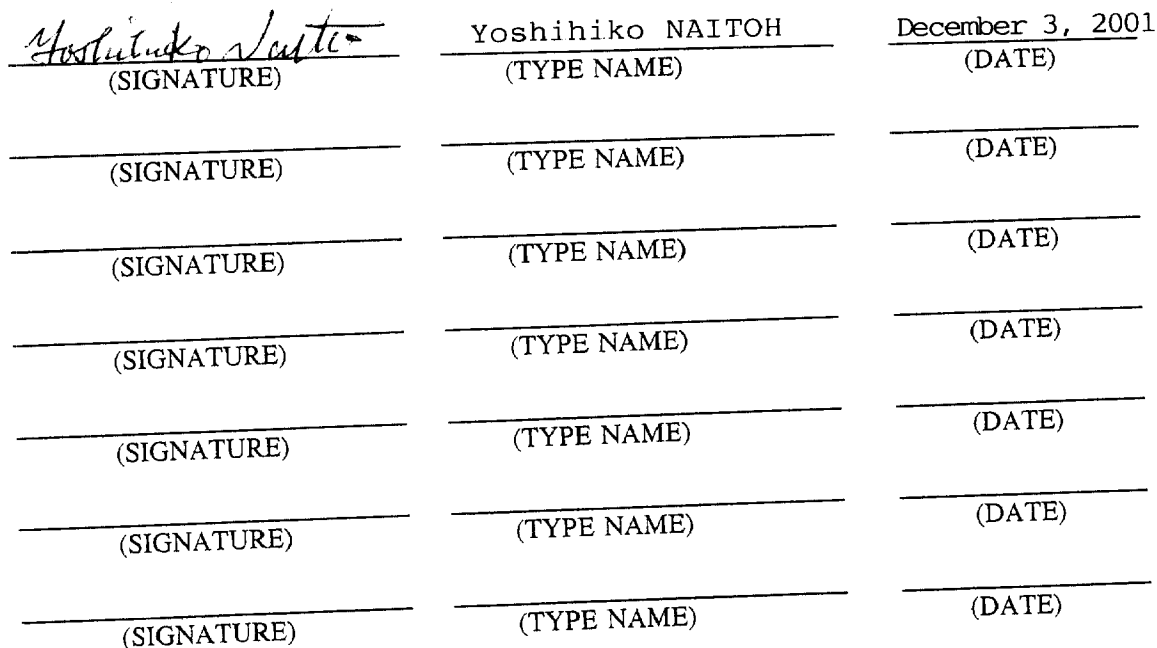 Yoshihiko Naito Yoshihiko NAITOH December 3, 2001
(SIGNATURE) (TYPE NAME) (DATE)
(SIGNATURE) (TYPE NAME) (DATE)
(SIGNATURE) (TYPE NAME) (DATE)
(SIGNATURE) (TYPE NAME) (DATE)
(SIGNATURE) (TYPE NAME) (DATE)
(SIGNATURE) (TYPE NAME) (DATE)
(SIGNATURE) (TYPE NAME) (DATE)